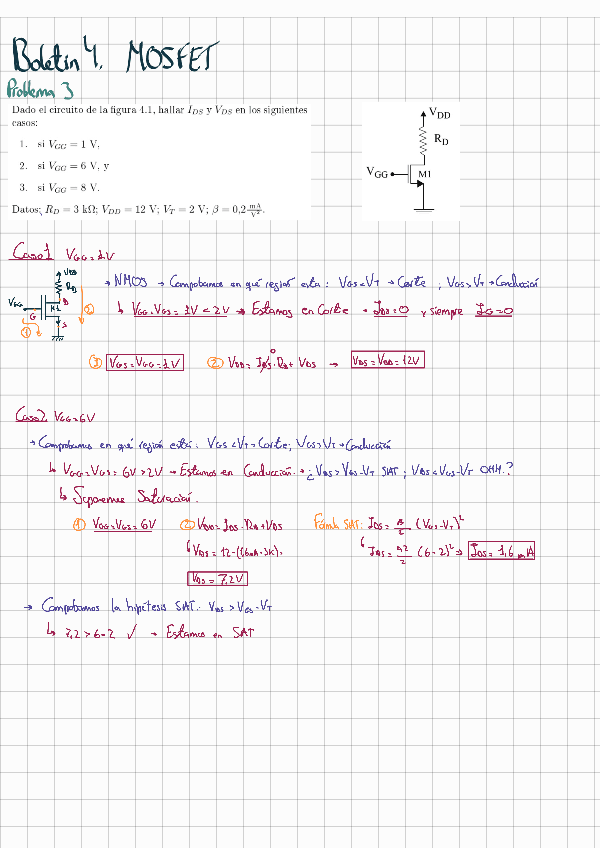 Boletín 4. MOSFET
Problema 3
Dado el circuito de la figura 4.1, hallar I_DS y V_DS en los siguientes
casos:
1. si V_GG = 1 V,
2. si V_GG = 6 V, y
3. si V_GG = 8 V.
Datos: R_D = 3 kΩ; V_DD = 12 V; V_T = 2 V; β = 0,2 mA/V².
V_DD
R_D
V_GG M1
Caso 1 V_GG = 1V
V_DD
R_D
D
V_GG G M1
S
① ②
→ NMOS → Comprobamos en qué región esta: V_GS < V_T → Corte ; V_GS > V_T → Conducción
↳ V_GG = V_GS = 1V < 2V → Estamos en Corte → I_DS = 0 y siempre I_G = 0
① V_GS = V_GG = 1V ② V_DD = I_DS · R_D + V_DS → V_DS = V_DD = 12V
0
Caso 2 V_GG = 6V
→ Comprobamos en qué región está: V_GS < V_T → Corte; V_GS > V_T → Conducción
↳ V_GG = V_GS = 6V > 2V → Estamos en Conducción. → ¿ V_DS > V_GS - V_T SAT ; V_DS < V_GS - V_T OHM.?
↳ Suponemos Saturación.
① V_GG = V_GS = 6V ② V_DD = I_DS · R_D + V_DS Fórmula SAT: I_DS = β/2 (V_GS - V_T)²
↳ V_DS = 12 - (1,6mA · 3K). ↳ I_DS = 0,2/2 (6 - 2)² → I_DS = 1,6 mA
V_DS = 7,2V
→ Comprobamos la hipótesis SAT. V_DS > V_GS - V_T
↳ 7,2 > 6 - 2 ✓ → Estamos en SAT